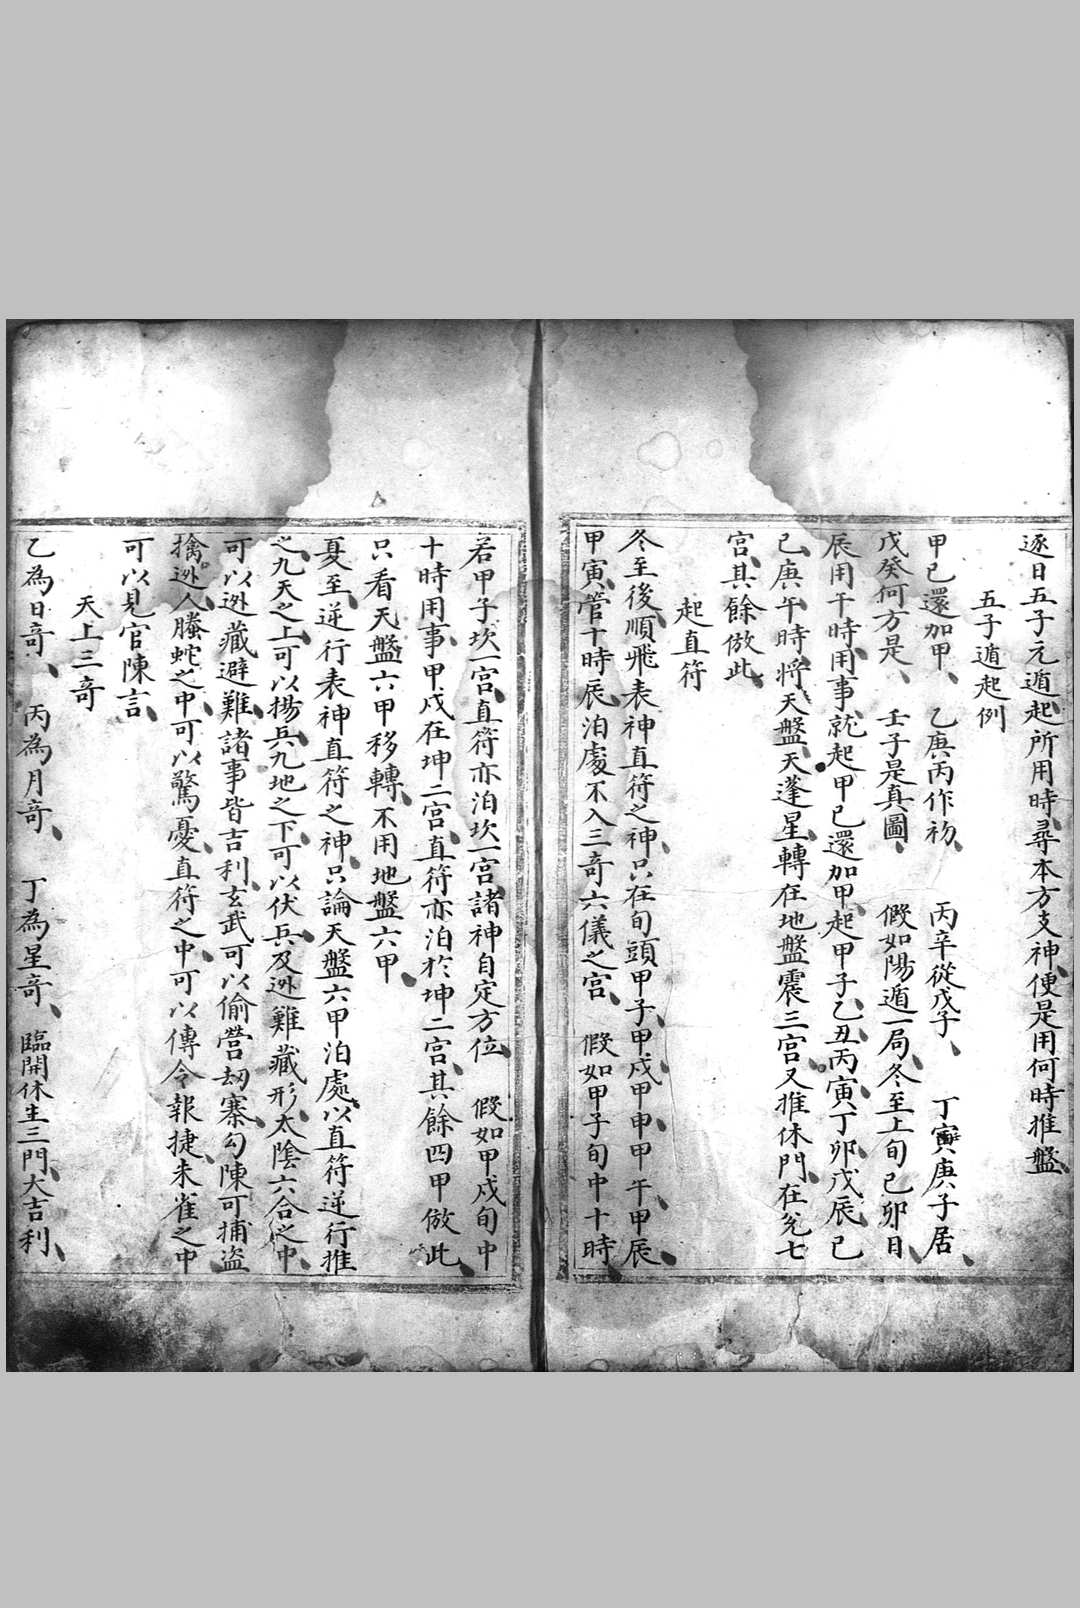 逐日五子元遁起所用時尋本方支神便是用何時推盤
五子遁起例
甲己還加甲、乙庚丙作初、丙辛從戊子、丁寅庚子居、
戊癸何方是、壬子是真圖、假如陽遁一局、冬至上旬己卯日、
辰用午時、用事就起甲己還加甲、起甲子乙丑丙寅丁卯戊辰己
巳庚午時、將天盤天蓬星轉在地盤震三宮、又推休門在兌七
宮、其餘倣此、
起直符
冬至後順飛表神直符之神、只在旬頭甲子甲戌甲申甲午甲辰、
甲寅、管十時辰、泊處不入三奇六儀之宮、假如甲子旬中十時
若甲子坎一宮、直符亦泊坎一宮、諸神自定方位、假如甲戌旬中
十時用事、甲戌在坤二宮、直符亦泊於坤二宮、其餘四甲倣此、
只看天盤六甲移轉、不用地盤六甲、
夏至逆行表神直符之神、只論天盤六甲泊處、以直符逆行推
之、九天之上可以揚兵、九地之下、可以伏兵及迯難藏形、太陰六合之中、
可以迯藏避難、諸事皆吉利、玄武可以偷營刼寨、勾陳可捕盜
擒迯人、螣蛇之中、可以驚憂、直符之中、可以傳令報捷、朱雀之中
可以見官陳言、
天上三奇
乙為日奇、丙為月奇、丁為星奇、臨開休生三門、大吉利、